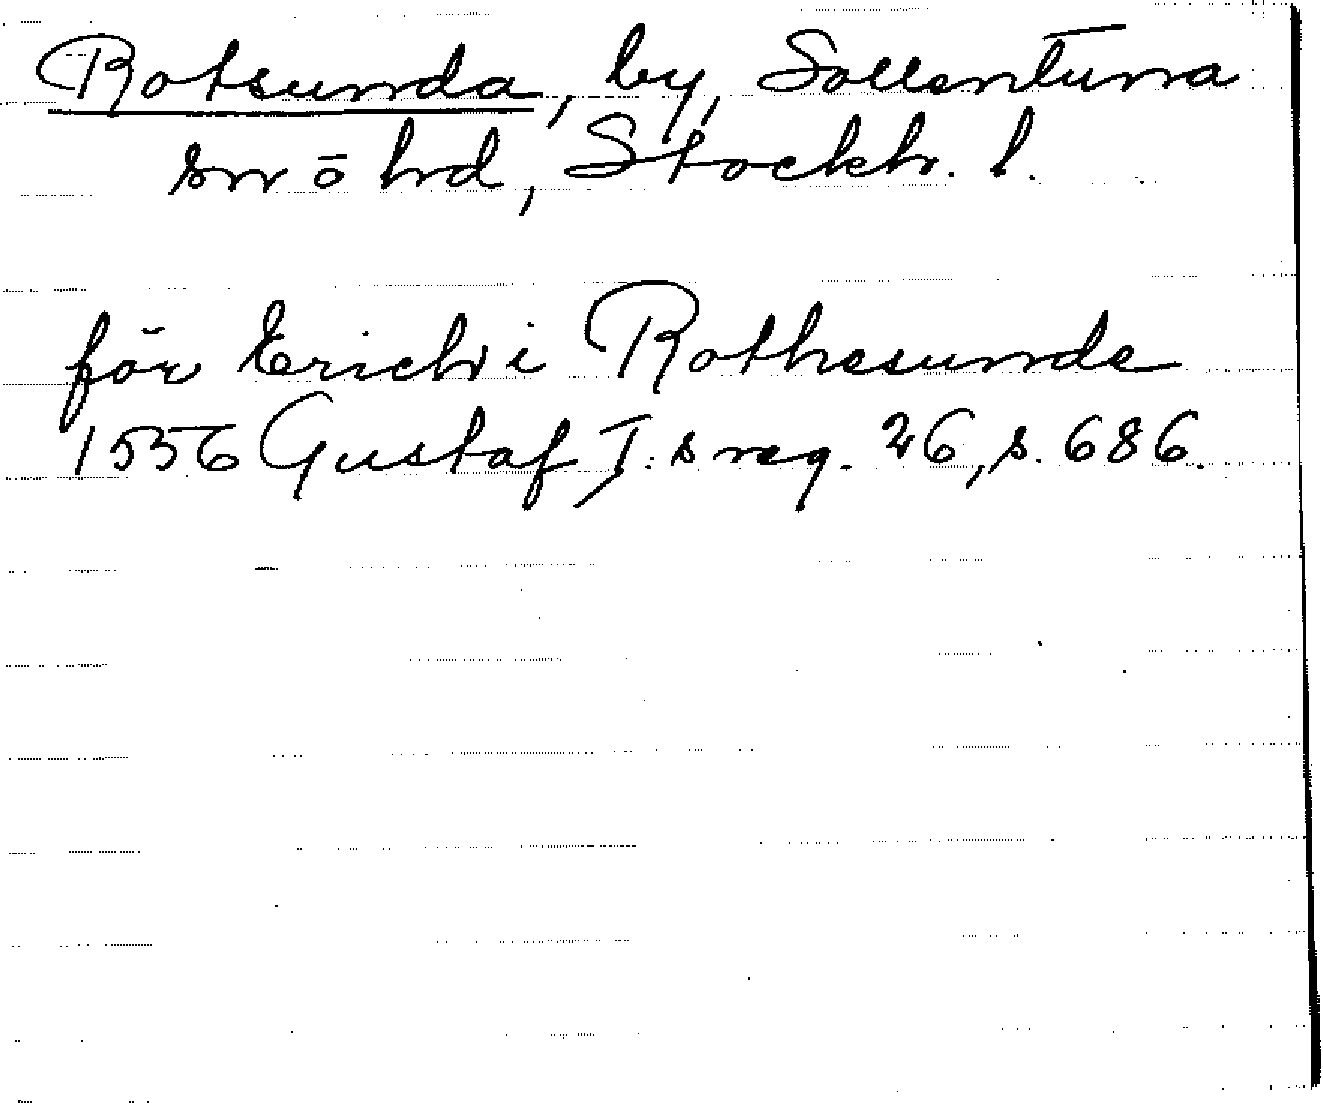 Rotsunda, by, Sollentuna
sn o hd, Stockh. l.
för Erich i Rothesunde
1556 Gustaf I:s reg. 26, s. 686.